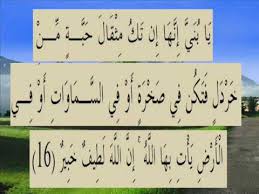 يَا بُنَيَّ إِنَّهَا إِن تَكُ مِثْقَالَ حَبَّةٍ مِّنْ
خَرْدَلٍ فَتَكُن فِي صَخْرَةٍ أَوْ فِي السَّمَاوَاتِ أَوْ فِي
الْأَرْضِ يَأْتِ بِهَا اللَّهُ ۚ إِنَّ اللَّهَ لَطِيفٌ خَبِيرٌ (16)